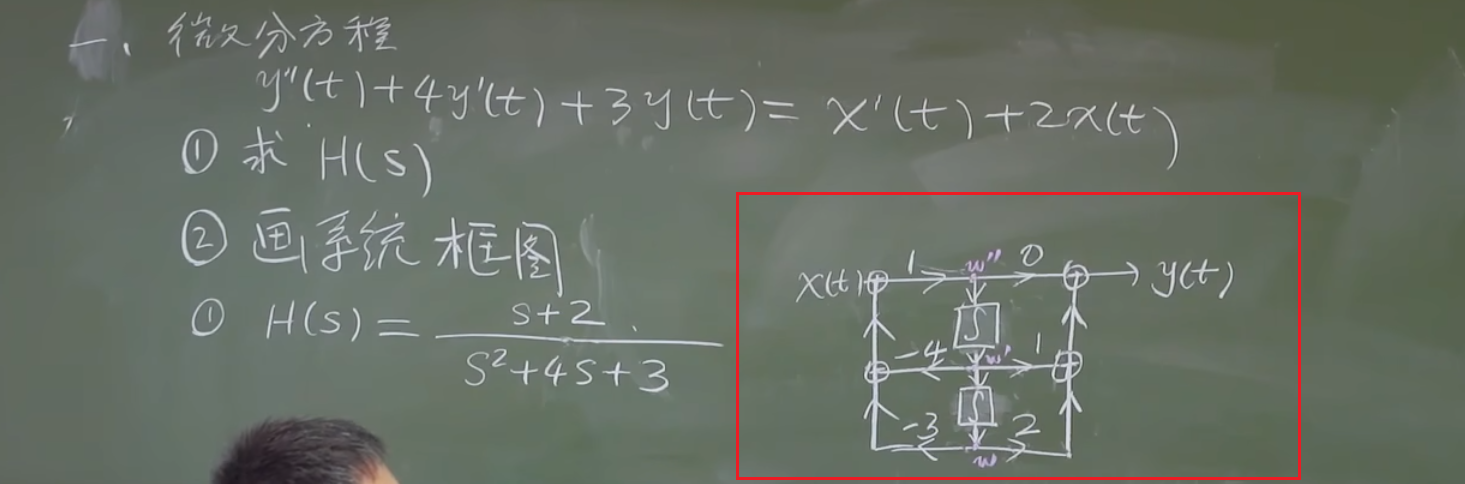 一、微分方程
y''(t)+4y'(t)+3y(t)=x'(t)+2x(t)
① 求 H(s)
② 画系统框图
① H(s)=
s+2
s²+4s+3
x(t) 1 w'' 0 y(t)
∫
-4 w' 1
∫
-3 2
w